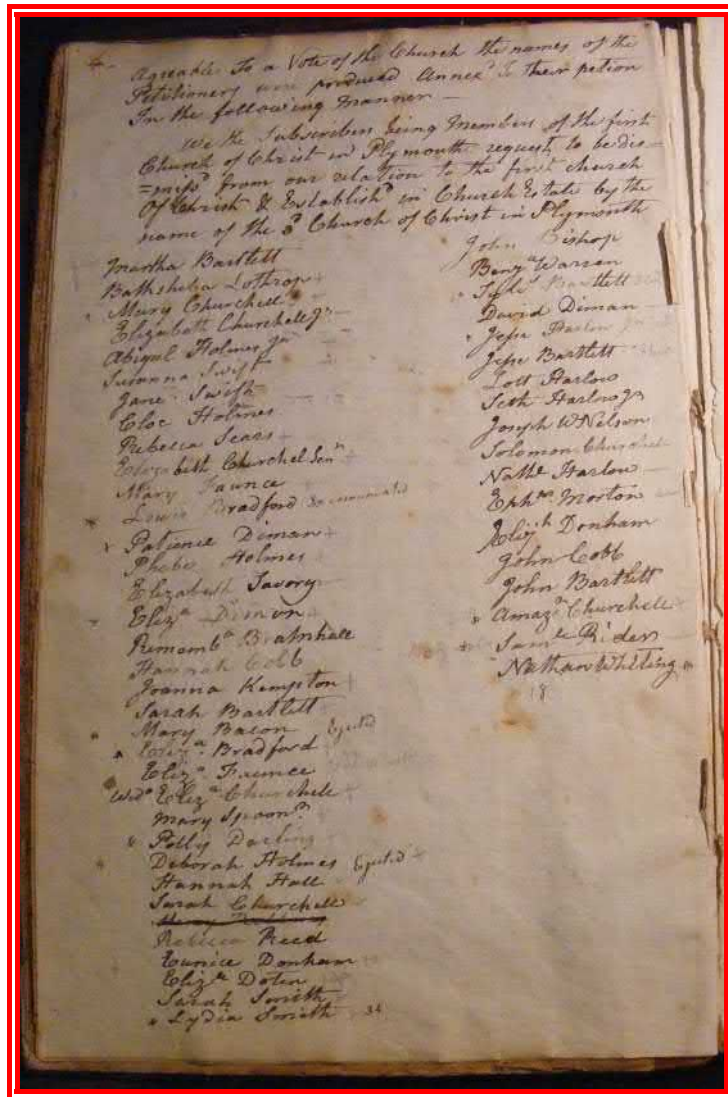 Agreable To a Vote of the Church the names of the
Petitioners were produced Annex'd To their petion
In the following manner —
We the Subscribers being Members of the first
Church of Christ in Plymouth request to be dis=
=miss'd from our relation to the first church
Of Christ & Establish'd in Church Estate by the
name of the 3d Church of Christ in Plymouth
Martha Bartlett
Bathsheba Lothrop
Mary Churchell
Elizabeth Churchell Jr
Abigal Holmes Jr
Susanna Swift
Jane Swift
Cloe Holmes
Rebecca Sears
Elizabeth Churchel Senr
Mary Faunce
Bradford
Patience Diman
Phebe Holmes
Elizabeth Savory
Eliza Dimon
Rememba Bramhall
Hannah Cobb
Joanna Kempton
Sarah Bartlett
Mary Bacon Ejected
Eliza Bradford
Eliza Faunce
Wido Eliza Churchell
Mary Spoonr
Polly Darling
Deborah Holmes Ejected
Hannah Hall
Sarah Churchell
Rebecca Reed
Eunice Donham
Eliza Doten
Sarah Smith
Lydia Smith 34
John Bishop
Benja Warren
Bartlett
David Diman
Jesse Harlow
Jesse Bartlett
Lott Harlow
Seth Harlow Jr
Joseph W Nelson
Solomon Churchel
Nathl Harlow
Ephm Morton
Elijh Donham
John Cobb
John Bartlett
Amaza Churchell
Saml Rider
Nathan Whiting
18